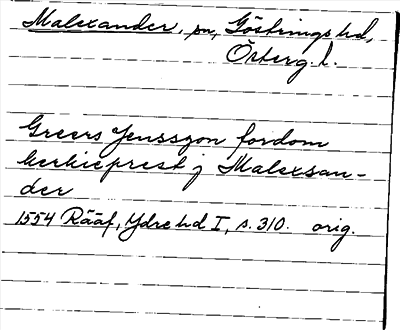 Malexander, sn, Göstrings hd,
Österg. l.
Greers Jensszon fordom
kerkieprest j Malexsan-
der
1554 Rääf, Ydre hd I, s. 310. orig.